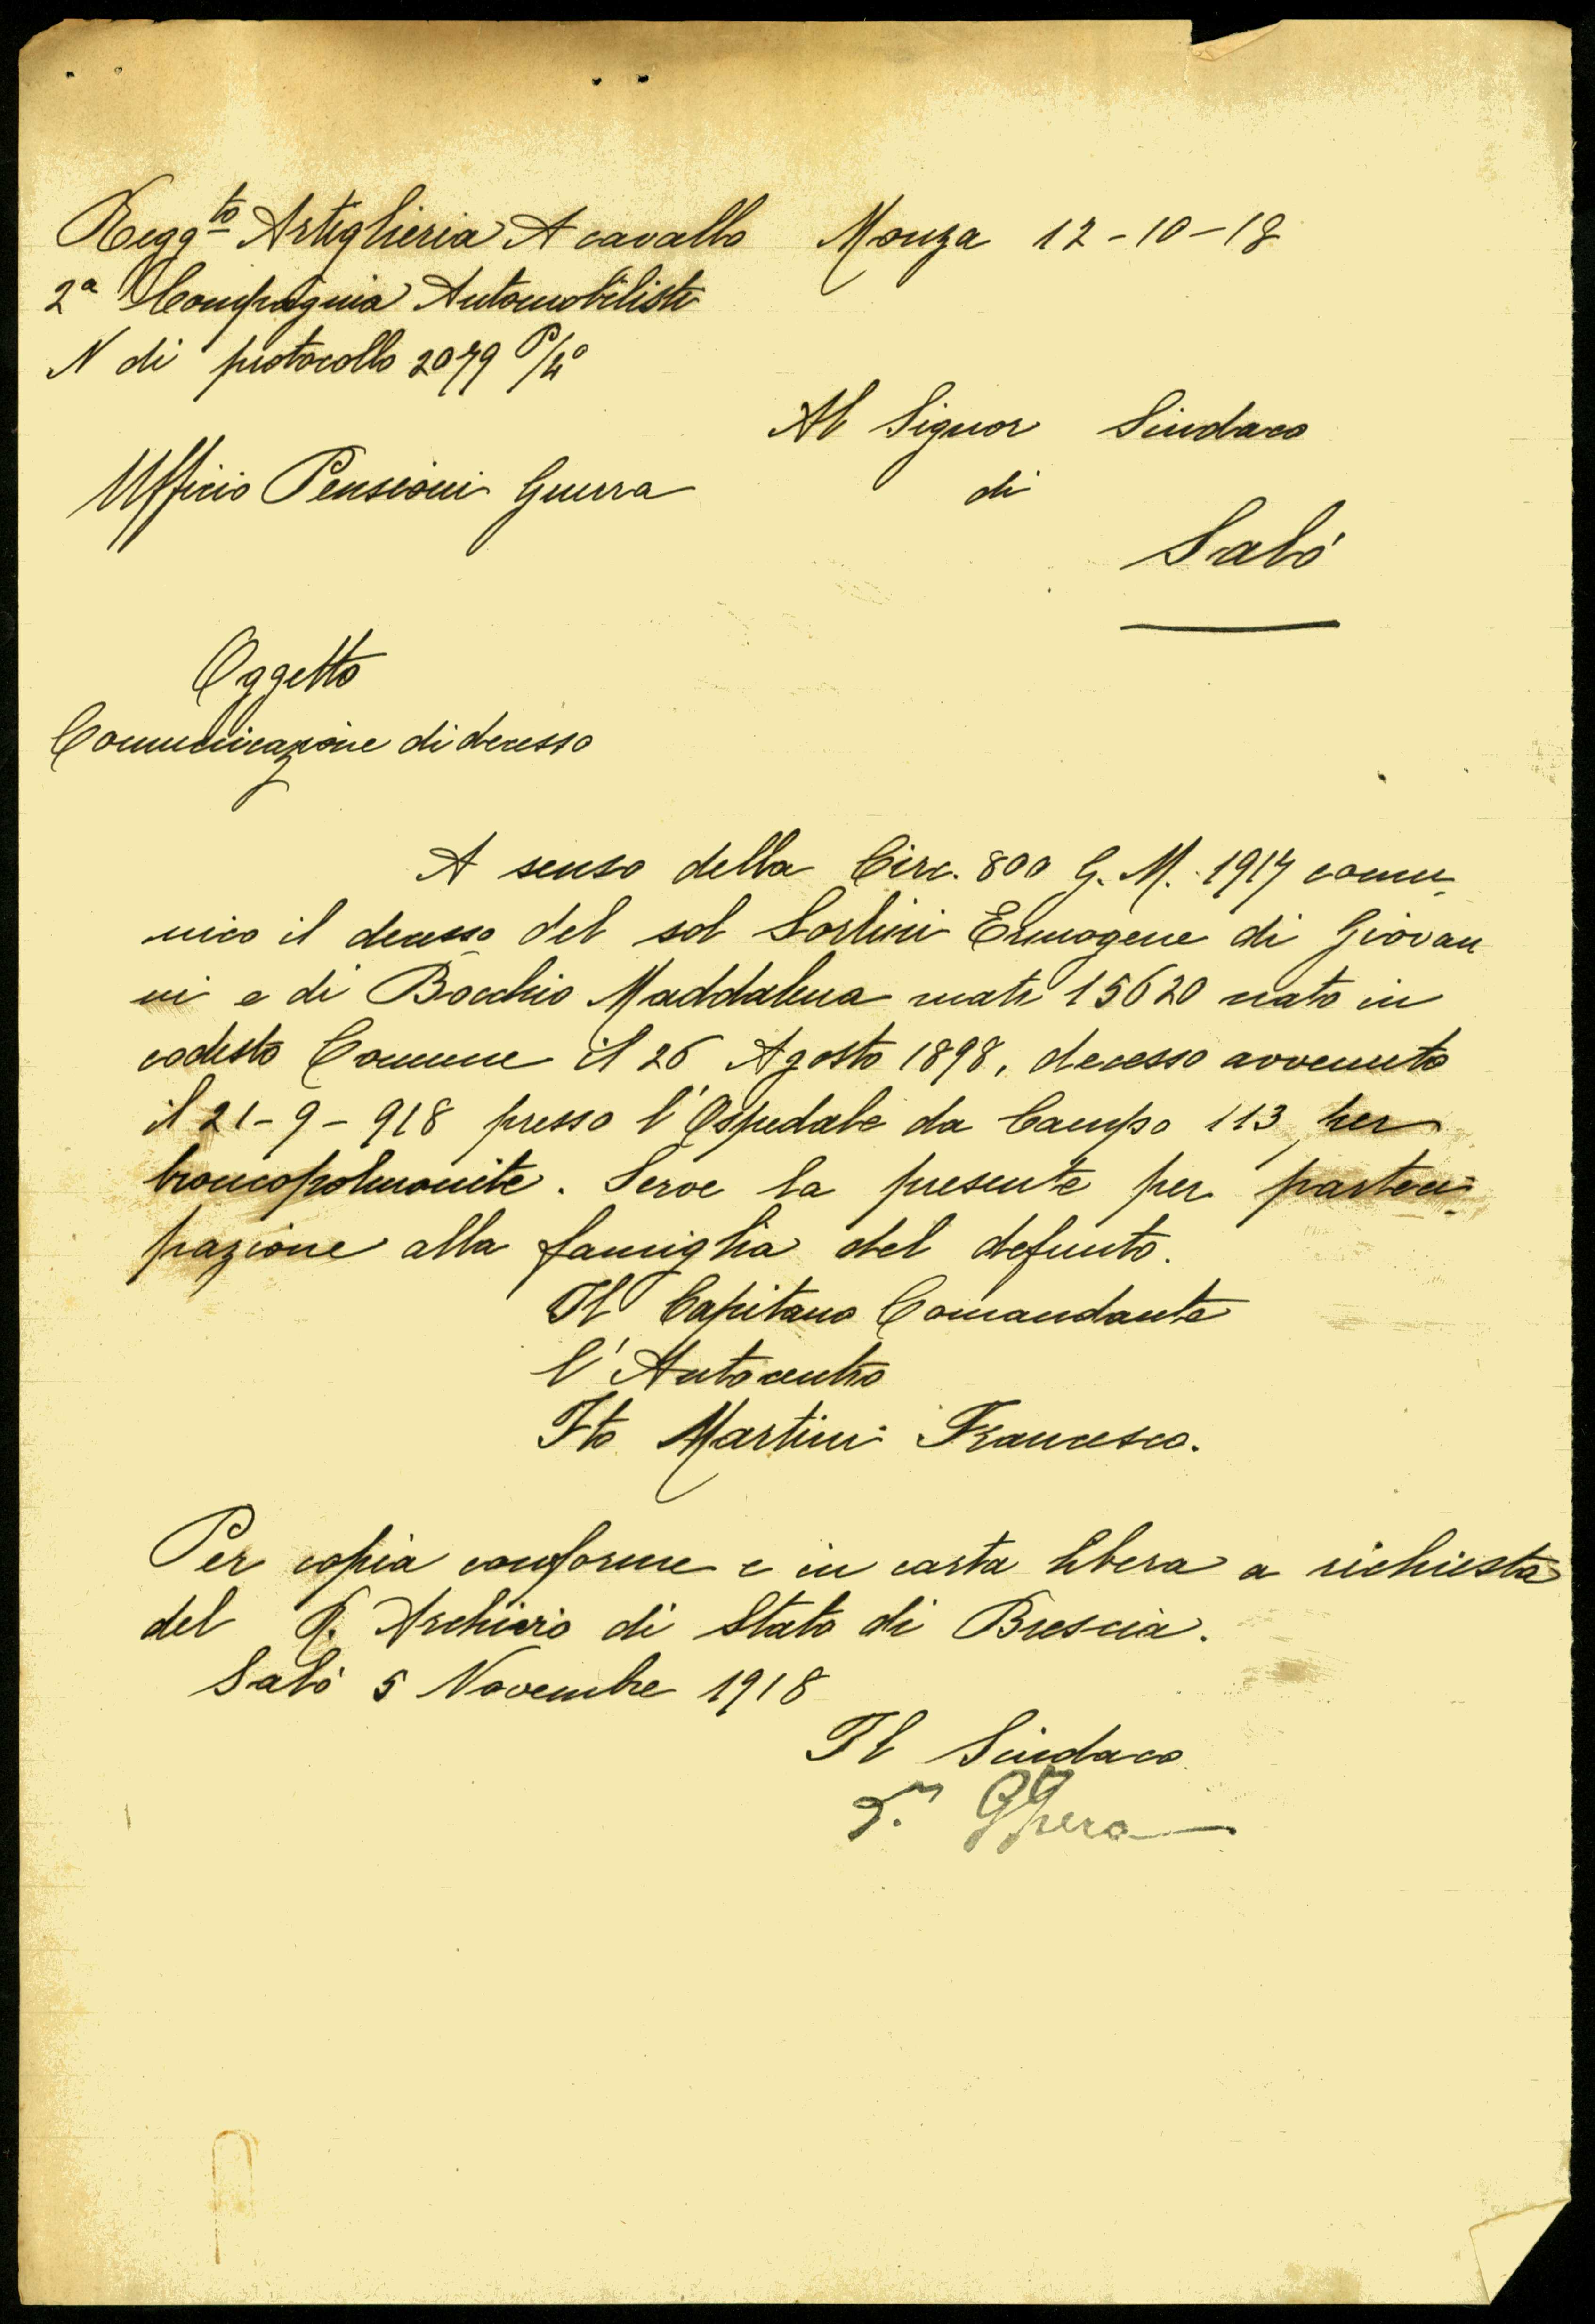 Regg.to Artiglieria A cavallo Monza 12-10-18
2ª Compagnia Automobilisti
N di protocollo 2079 P/4°
Al Signor Sindaco
Ufficio Pensioni Guerra
di
Salò
Oggetto
Comunicazione di decesso
A senso della Circ. 800 G. M. 1917 comu-
nico il decesso del sol Sortini Ermogene di Giovan
ni e di Bocchio Maddalena matr 15620 nato in
codesto Comune il 26 Agosto 1898, decesso avvenuto
il 21-9-918 presso l'Ospedale da Campo 113, per
broncopolmonite. Serve la presente per parteci-
pazione alla famiglia del defunto.
Il Capitano Comandante
l'Autocentro
Fto Martini Francesco.
Per copia conforme e in carta libera a richiesta
del R. Archivio di Stato di Brescia.
Salò 5 Novembre 1918
Il Sindaco